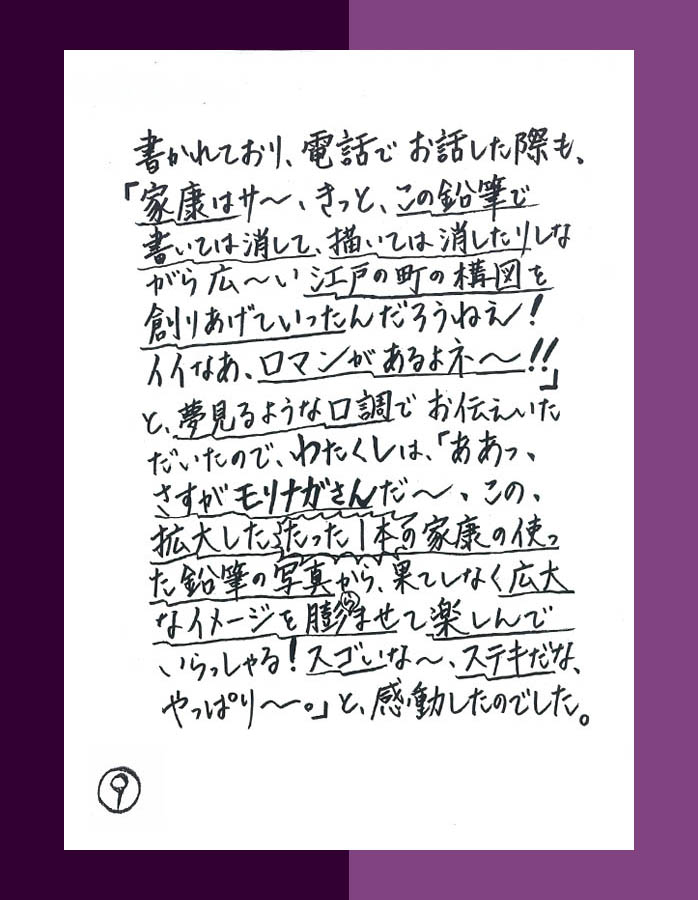 書かれており、電話でお話した際も、
「家康はサ〜、きっと、この鉛筆で
書いては消して、描いては消したりしな
がら広〜い江戸の町の構図を
創りあげていったんだろうねえ!
イイなあ、ロマンがあるよネ〜!!」
と、夢見るような口調でお伝えいた
だいたので、わたくしは、「ああっ、
さすがモリナガさんだ〜、この、
拡大したたった1本の家康の使っ
た鉛筆の写真から、果てしなく広大
なイメージを膨らませて楽しんで
いらっしゃる!スゴいな〜、ステキだな、
やっぱり〜。」と、感動したのでした。
9